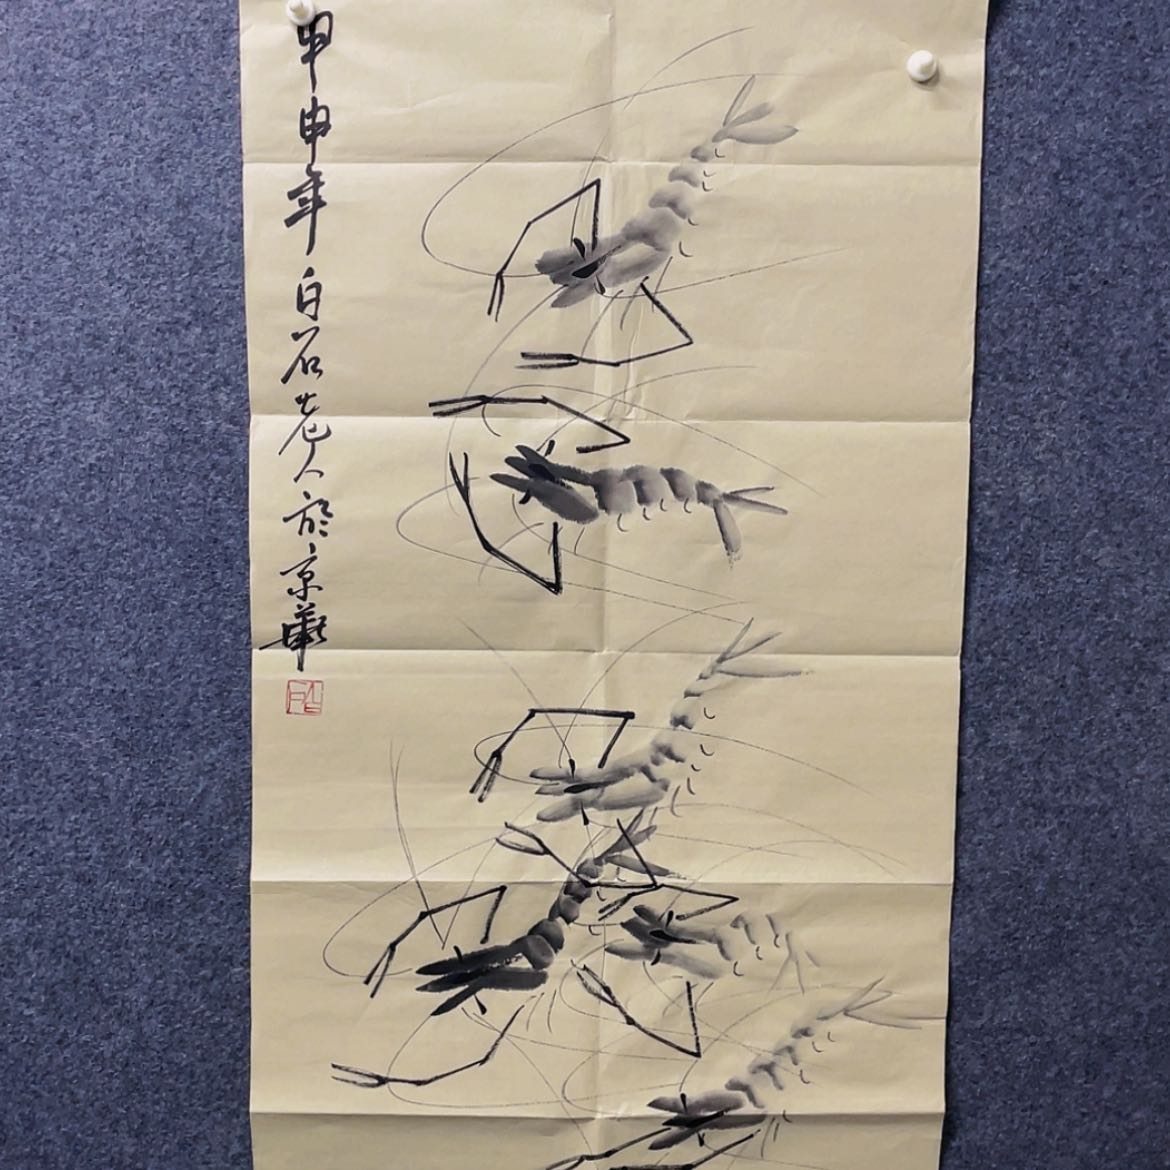 甲申年白石老人於京華